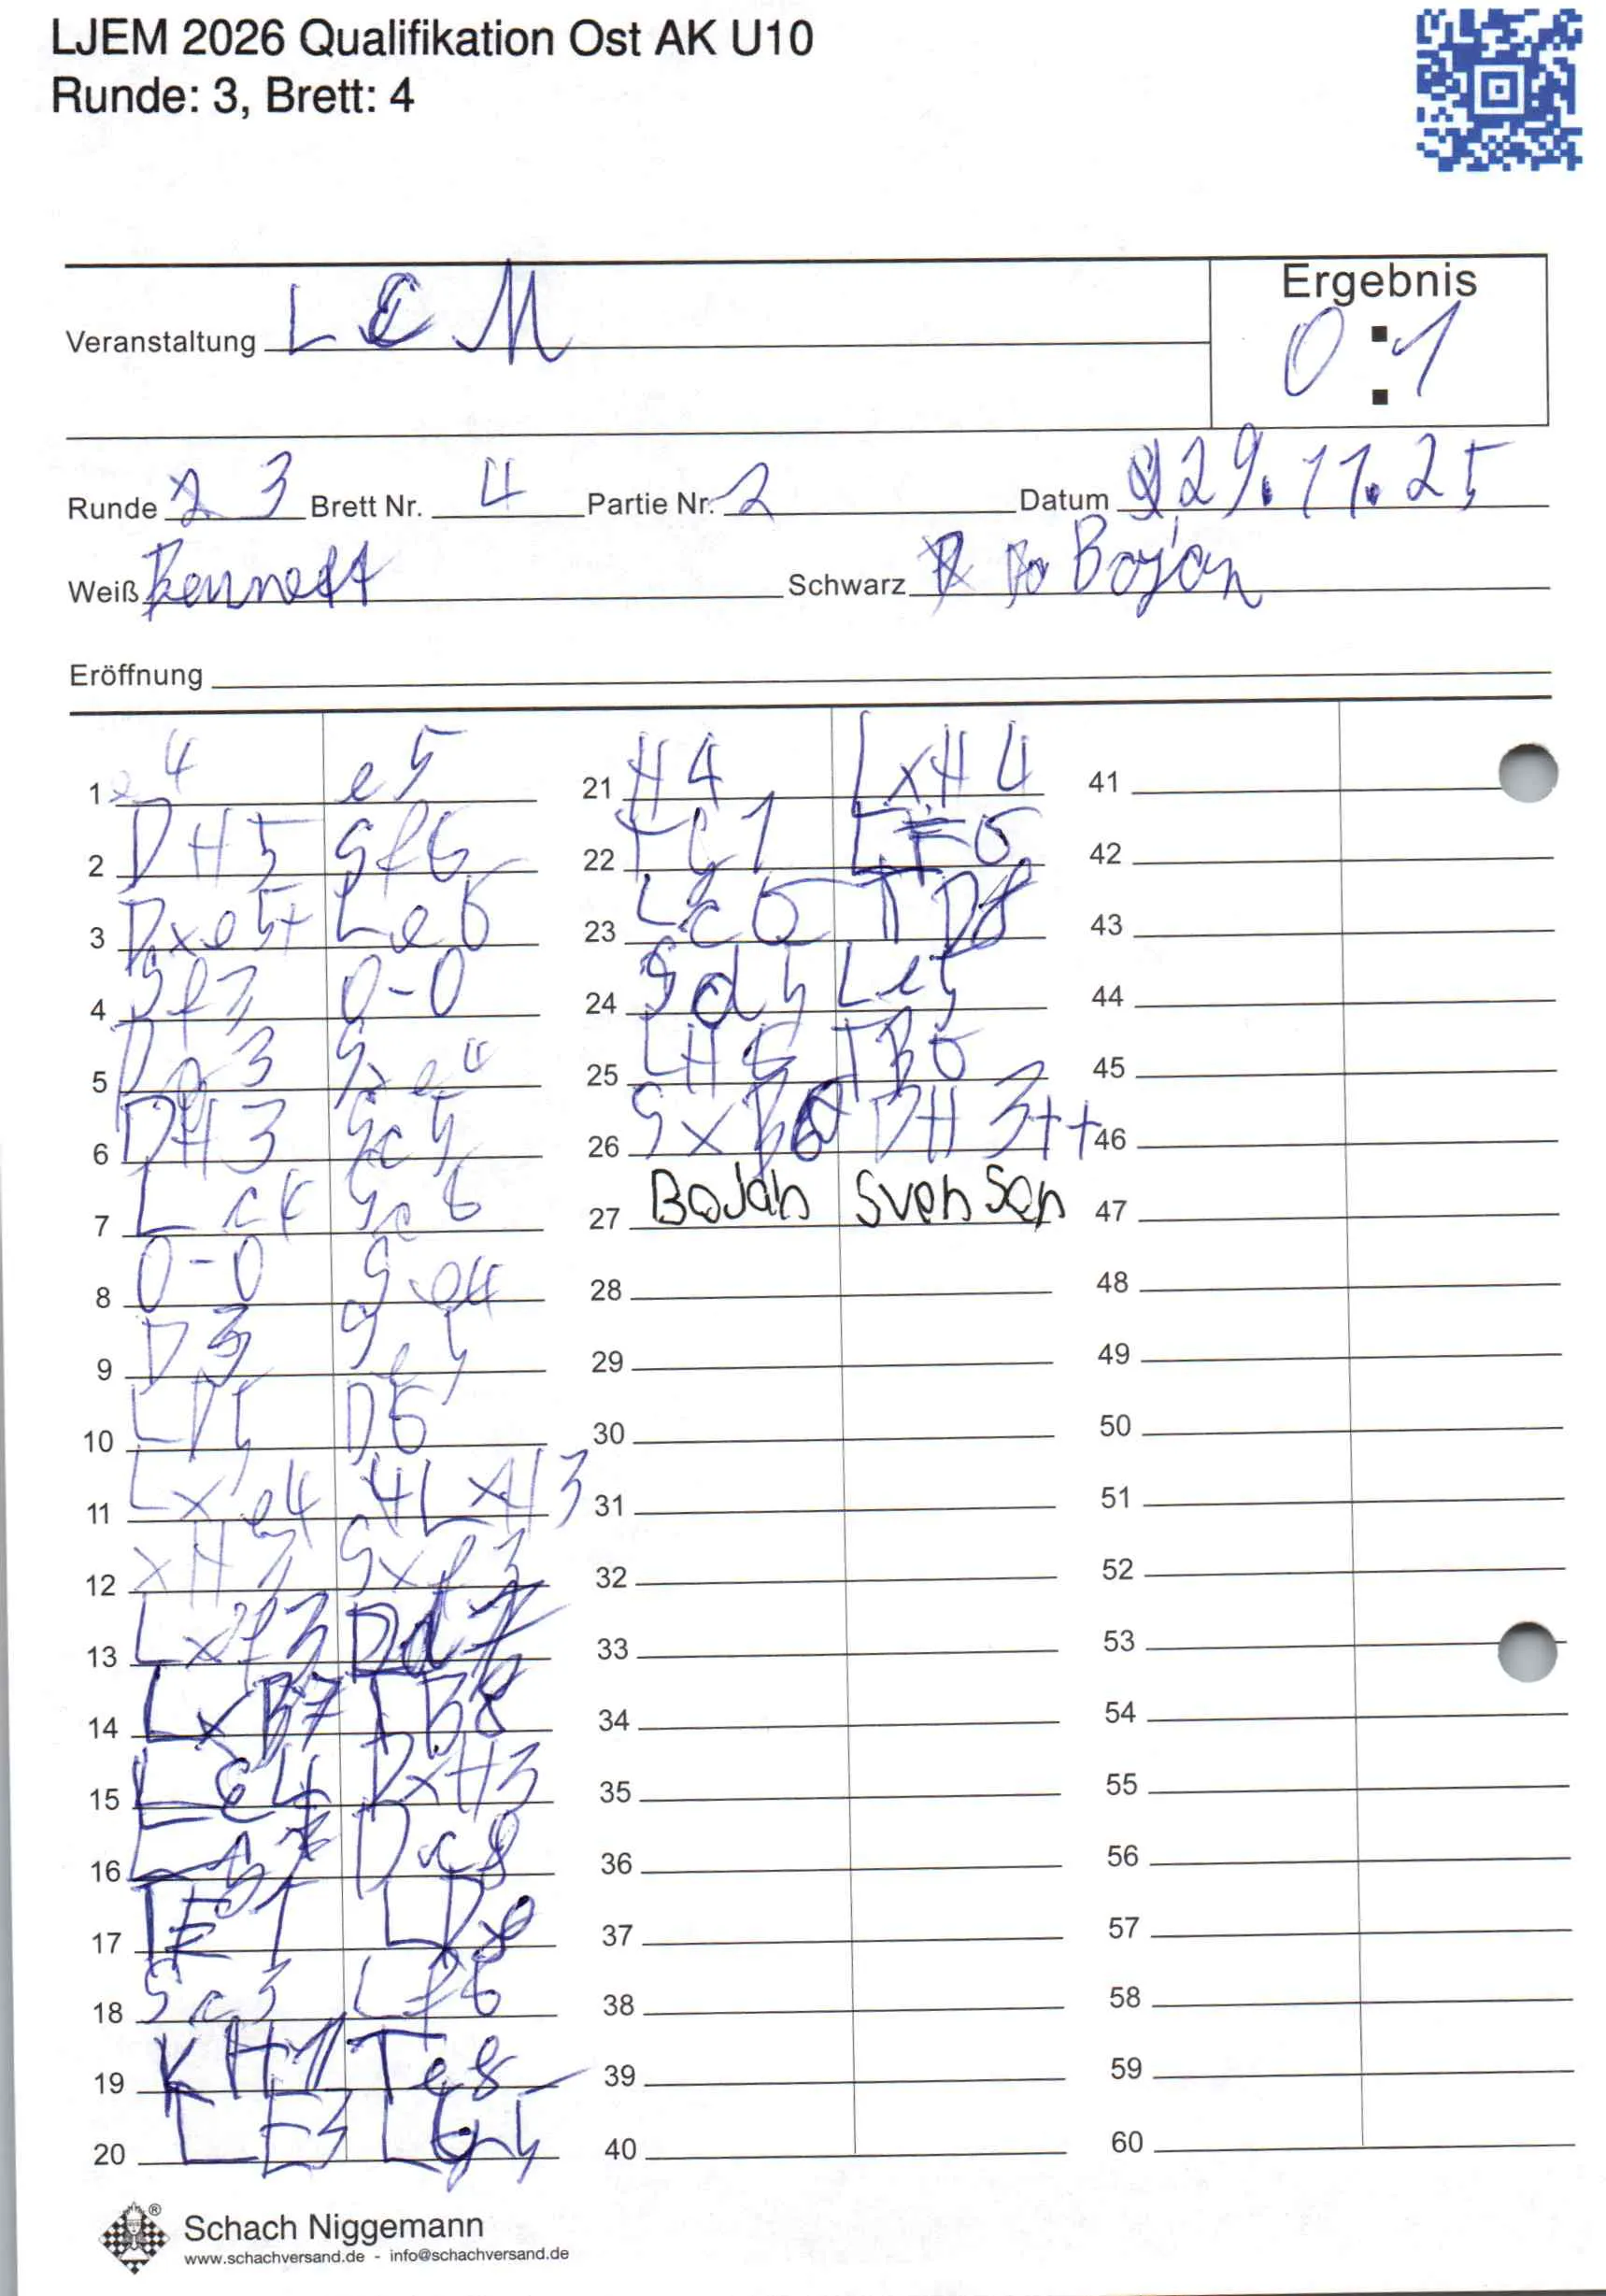 LJEM 2026 Qualifikation Ost AK U10
Runde: 3, Brett: 4
Veranstaltung LEM
Ergebnis
0:1
Runde 3 Brett Nr. 4 Partie Nr. 2 Datum 29.11.25
Weiß Bennett Schwarz Bojan
Eröffnung
1 e4 e5
2 DH5 Sf6
3 Dxe5+ Le6
4 Sf3 0-0
5 3 Sxe4
6 DH3 Sc5
7 Lc4 Sc6
8 0-0 Se4
9 D3 S
10 LD5 D6
11 Lxe4 LxH3
12 xH3 Sxf3
13 Lxf3 Dd7
14 LxB7 TB8
15 Le4 DxH3
16 L Dc8
17 TE1 LD
18 Sc3 Lf6
19 KH1 Te8
20 LE3 LG5
21 H4 LxH4
22 TG1 LF6
23 Lc6 TD8
24 Sd5 Le5
25 LH6 TB6
26 SxB6 DH3++
27 Bojan Svensen
28
29
30
31
32
33
34
35
36
37
38
39
40
41
42
43
44
45
46
47
48
49
50
51
52
53
54
55
56
57
58
59
60
Schach Niggemann
www.schachversand.de - info@schachversand.de